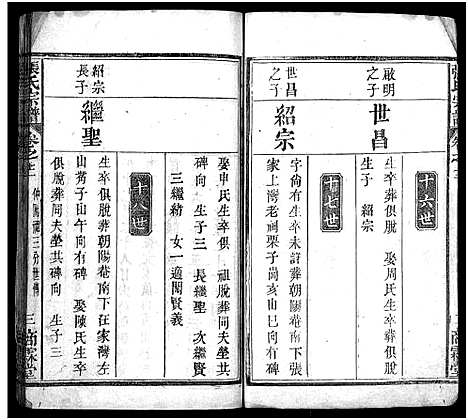 十六世
啟明之子
世昌
生卒葬俱脫 娶周氏生卒葬俱脫
生子 紹宗
十七世
世昌之子
紹宗
字倘有生卒未詳葬朝陽菴南下張
家上灣老祠栗子尚亥山巳向有碑
娶申氏生卒俱 祖脫葬同夫塋共
碑向 生子三 長繼聖 次繼賢
三繼紡 女一適閻賢義
十八世
紹宗長子
繼聖
生卒俱脫葬朝陽菴南下在家灣左
山莠子田午向有碑 娶陳氏生卒
俱脫葬同夫塋共碑向 生子三
張氏宗譜
卷之三
三